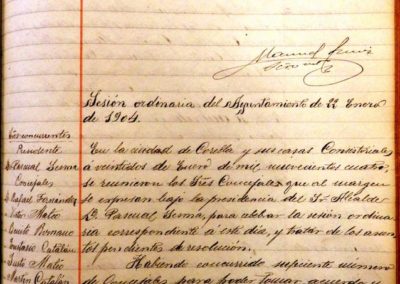 Manuel
Sesión ordinaria del Ayuntamiento de 22 Enero
de 1904.
Sres concurrentes
Presidente
D. Pascual Sesma
Concejales
D. Rafael Fernández
Mateo
Benito Romano
Gustavo Catalán
Justo Mateo
Martín Catalán
En la ciudad de Corella y sus casas Consistoriales
á veintidos de Enero de mil novecientos cuatro,
se reunieron los Sres Concejales que al margen
se expresan bajo la presidencia del Sr. Alcalde
D. Pascual Sesma, para celebrar la sesión ordina
ria correspondiente á este día, y tratar de los asun
tos pendientes de resolución.
Habiendo concurrido suficiente número
de Concejales para poder tomar acuerdo y